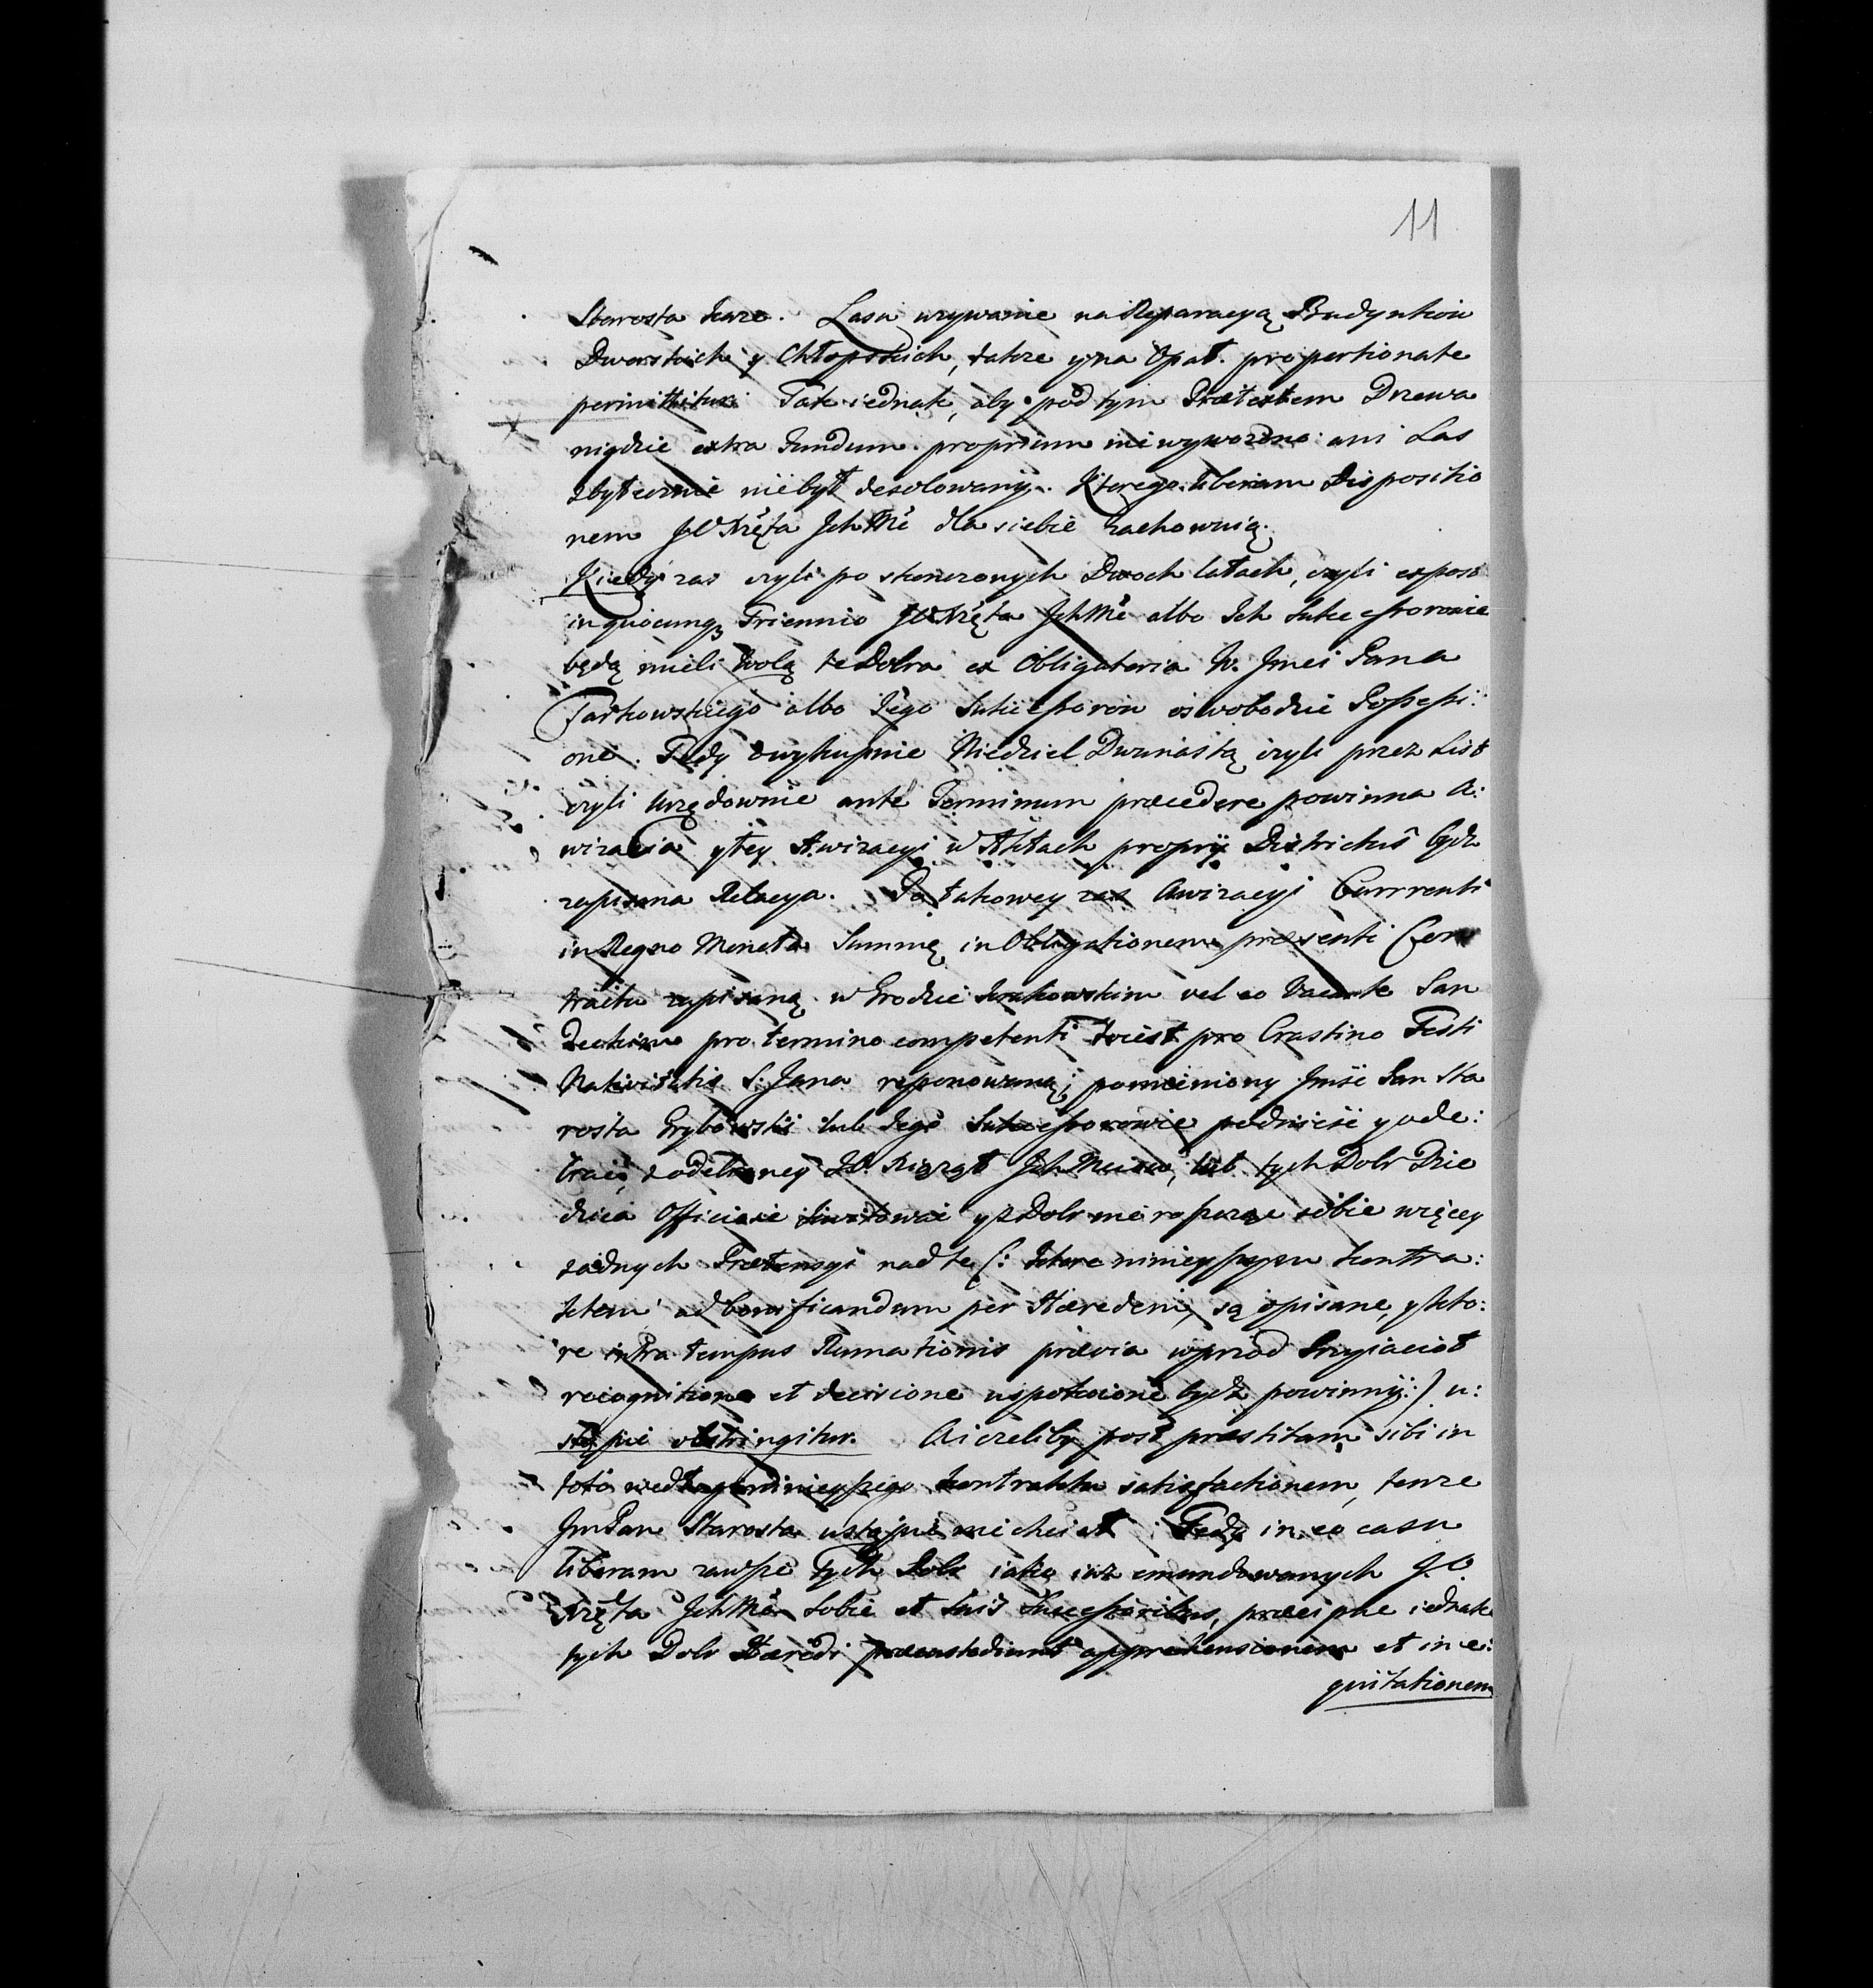 11
Starosta każe. Lasu używanie na Reparacyą Budynkow
Dworskich y Chłopskich, także y na Opał. proportionate
permittitur. Tak iednak, aby pod tym Prætextem Drzewa
nigdzie extra Fundum proprium nie wywożono ani Las
zbytecznie niebył desolowany. Ktorego liberam Dispositio
nem JO Xzęta JchMć dla siebie zachowuią.
Kiedy zas czyli po skonczonych Dwoch latach, czyli expost
in quocunq3 Triennio JO Xzęta JchMć albo Ich Sukcessorowie
będą mieli wolą te Dobra ex Obligatoria W. Jmci Pana
Tarkowskiego albo Jego Sukcessorow oswobodzic Possessi:
one. Tedy o wykupnie Niedziel Dwunastą czyli przez List
czyli Urzędownie ante Terminum præcedere powinna A:
wizacia y tey Awizacyi w Aktach proprii Districtus bydz
zapisana Relacya. Po takowey zas Awizacyi Currenti
in Regno Moneta Summę in Obligationem præsenti Con
tractu zapisaną w Grodzie Krakowskim vel eo Vacante San
deckim pro termino competenti to iest pro Crastino Festi
Nativitatis S. Jana reponowaną; pomieniony Jmść Pan Sta
rosta Grybowski lub Jego Sukcessorowie podniesć y ode:
brać, z odebraney JO. Xiążąt JchMciow, lub tych Dobr Dzie
dzica Officiose kwitować y z Dobr nie roszcząc sobie więcey
żadnych Prætensyi nad te (: ktore ninieyszym Kontra:
ktem ad bonificandum per Hæredem, są opisane, y kto:
re intra tempus Rumationis prævia wprzod Przyiacioł
recognitione et decisione uspokoione bydz powinny:) u:
stąpić obstringitur. A ieżeliby post præstitam sibi in
toto według ninieyszego kontraktu satisfactionem, tenże
Jm Pan Starosta ustąpić nie chciał. Tedy in eo casu
liberam zawsze Tych Dobr iako iuż emundowanych J.O.
Xzęta JchMć Sobie et Suis Successoribus, præcipue iednak
tych Dobr Hæredi præcustodiunt apprehensionem et in e:
quitationem